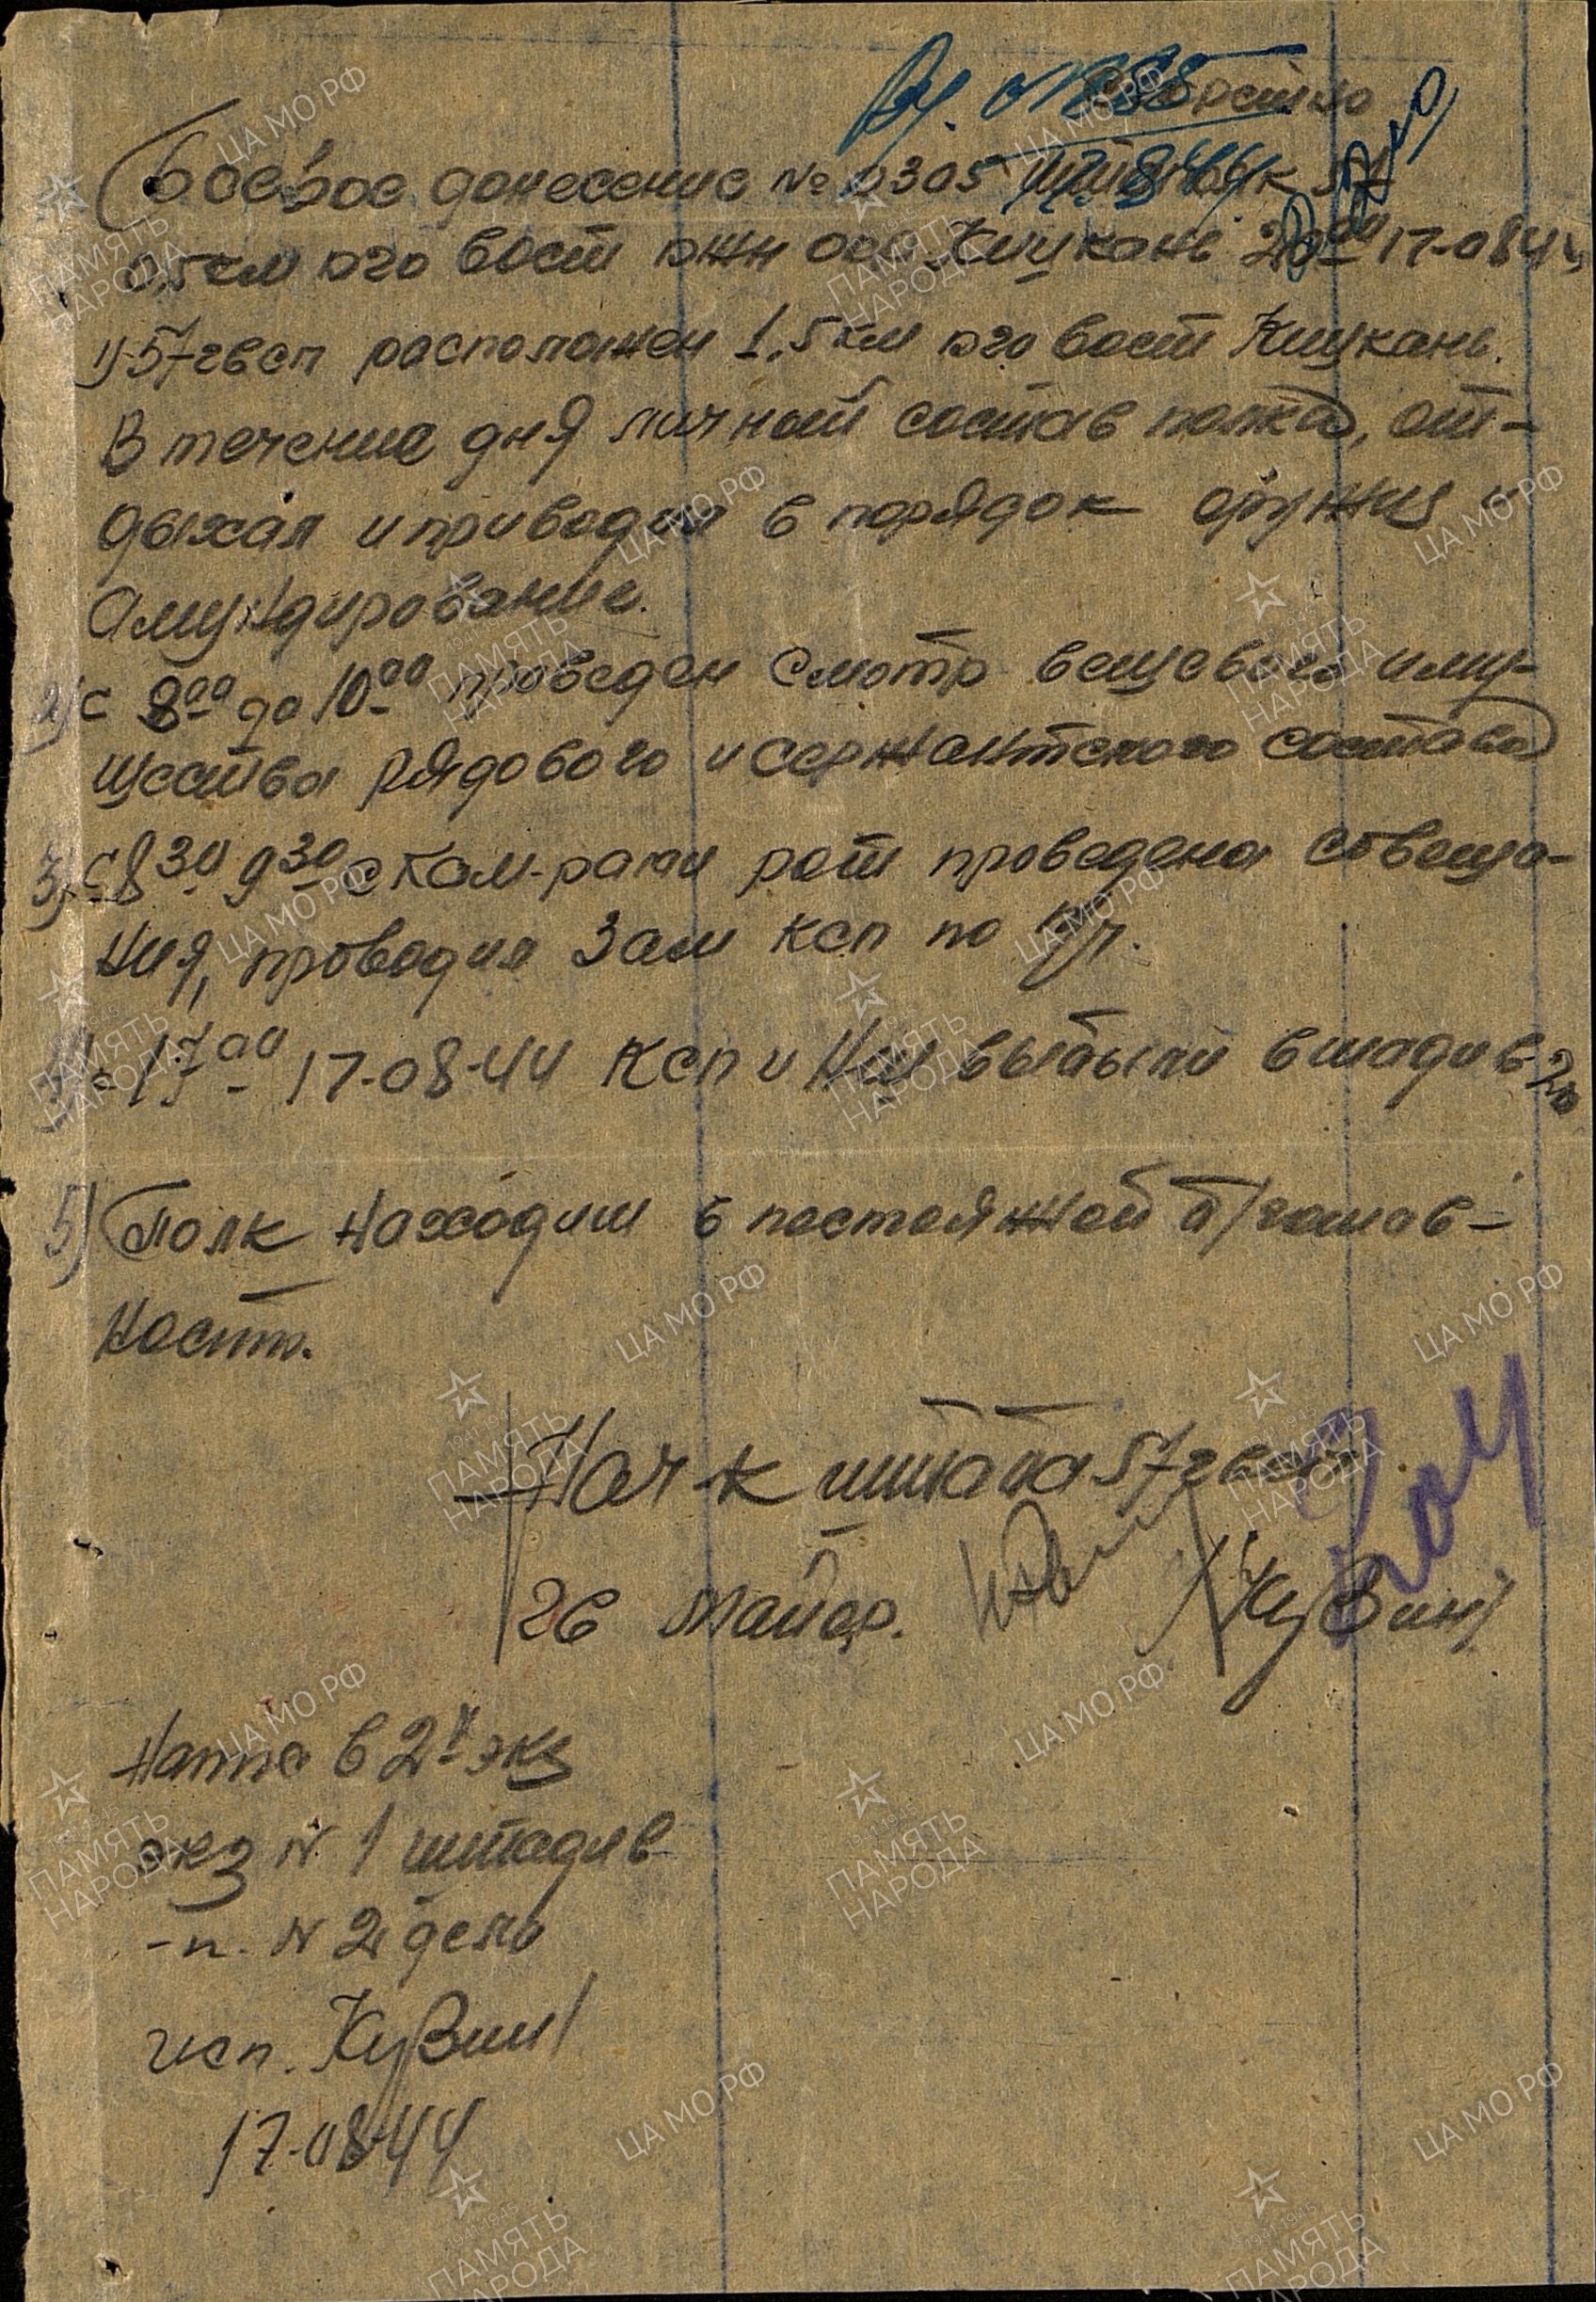 Вх. № 888
Секретно
17.8.44
Боевое донесение № 0305 штаполк 57
0,5 км юго вост южн окр Кицкань 20 00 17-08 44
1) 57 гвсп расположен 1,5 км юго вост Кицкань.
В течение дня личный состав полка, от-
дыхал и приводил в порядок оружие и
Амундирование.
2) с 8 00 до 10 00 проведен смотр вещевого иму-
щества рядового и сержантского состава
3) с 8 30 9 30 с ком-рами рот проведена совеща-
ния, проводил Зам ксп по с/ч.
4) в 17 00 17-08-44 Ксп и Нш выбыли в штадив 20
5) Полк находит в постояжной б/готов-
ност.
Нач-к штаба 57 гвсп
гв майор. /Кузин/
Напо в 2х экз
экз N 1 штадив
-п. N 2 дело
исп. Кузин
17-08-44
ЦА МО РФ
ПАМЯТЬ
НАРОДА